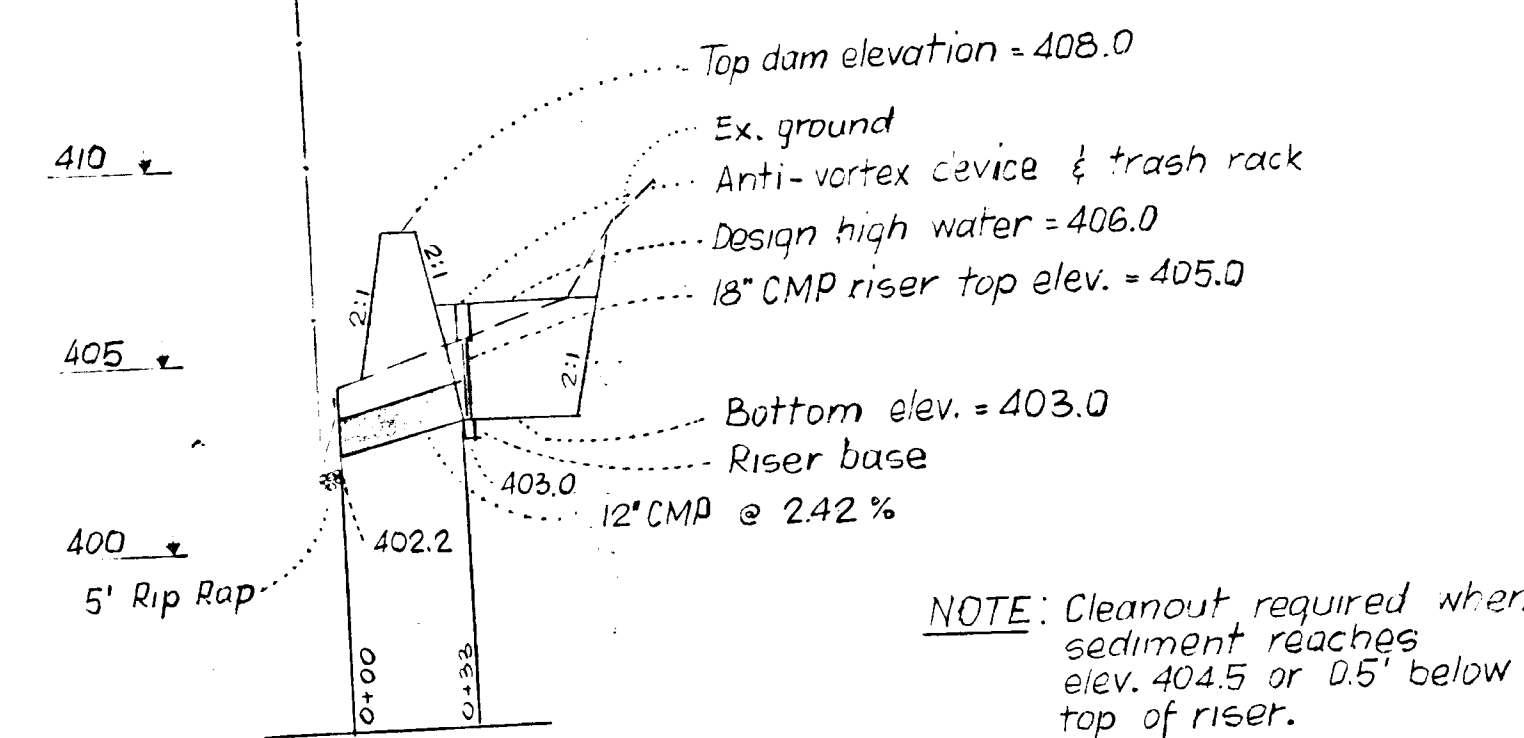 Top dam elevation = 408.0
Ex. ground
410
Anti-vortex cevice & trash rack
Design high water = 406.0
18" CMP riser top elev. = 405.0
2:1
2:1
405
2:1
Bottom elev. = 403.0
Riser base
403.0
12" CMP @ 2.42 %
400
402.2
5' Rip Rap
NOTE: Cleanout required when
sediment reaches
elev. 404.5 or 0.5' below
top of riser.
0+00
0+33